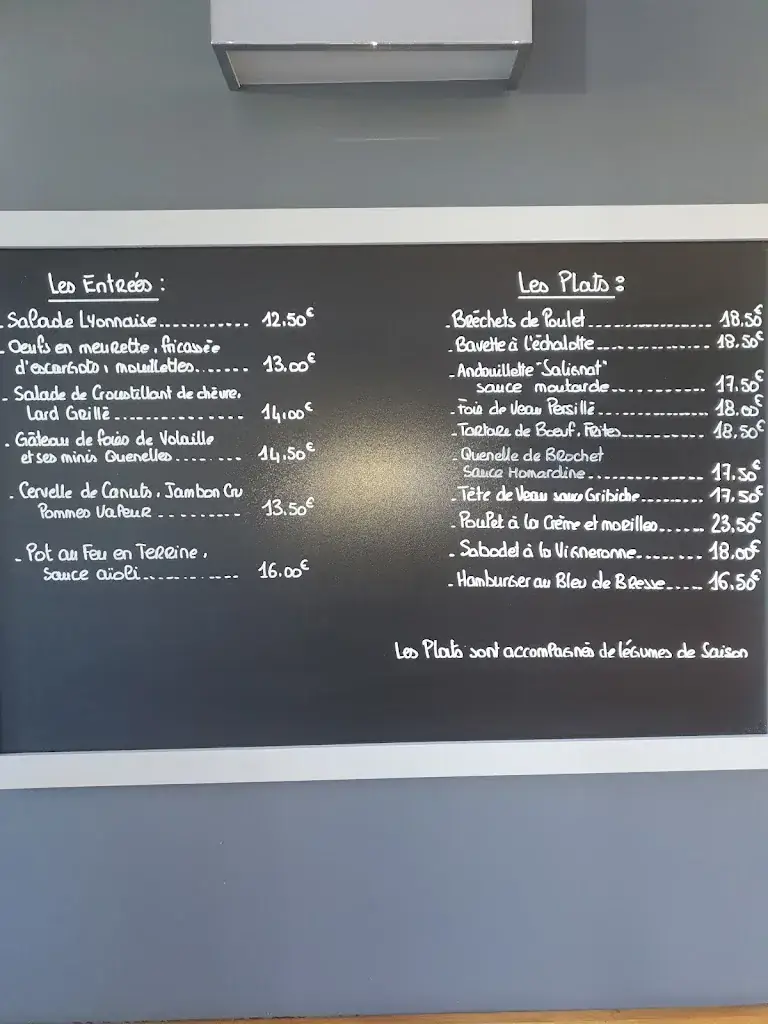 Les Entrées :
- Salade Lyonnaise............ 12.50€
- Oeufs en meurette, fricassée
d'escargots, mouillettes........ 13.00€
- Salade de Croustillant de chèvre,
Lard Grillé................ 14,00€
- Gâteau de foies de Volaille
et ses minis Quenelles........ 14.50€
- Cervelle de Canuts, Jambon Cru
Pommes Vapeur.......... 13.50€
- Pot au Feu en Terrine,
Sauce aïoli............ 16.00€
Les Plats :
- Bréchets de Poulet............... 18.50€
- Bavette à l'échalotte............... 18.50€
- Andouillette "Salignat"
sauce moutarde............ 17.50€
- Foie de Veau Persillé............... 18.00€
- Tartare de Boeuf, Frites............ 18,50€
- Quenelle de Brochet
Sauce Homardine............... 17.50€
- Tête de Veau sauce Gribiche......... 17.50€
- Poulet à la Crème et morilles...... 23,50€
- Sabodet à la Vigneronne......... 18.00€
- Hamburger au Bleu de Bresse..... 16.50€
Les Plats sont accompagnés de légumes de Saison